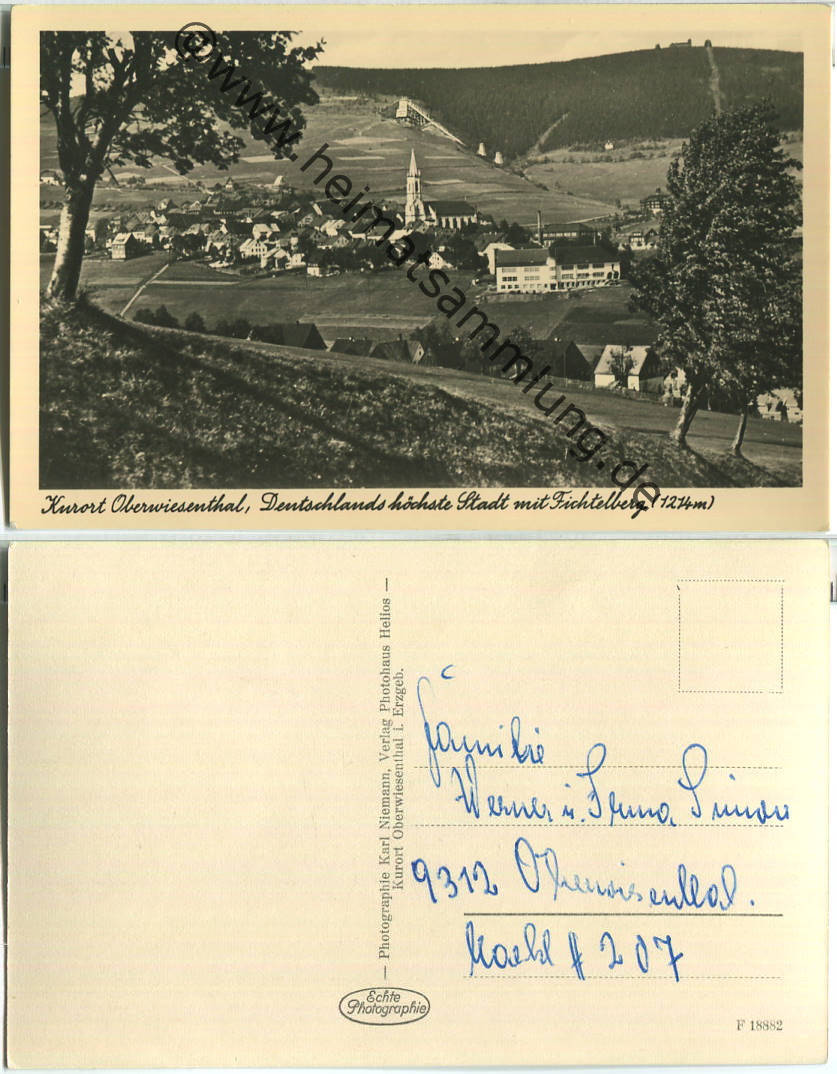 @ www.heimatsammlung.de
Kurort Oberwiesenthal, Deutschlands höchste Stadt mit Fichtelberg (1214m)
— Photographie Karl Niemann, Verlag Photohaus Helios —
Kurort Oberwiesenthal i. Erzgeb.
Familie
Werner u. Irma Simon
9312 Oberwiesenthal.
207
Echte
Photographie
F 18882